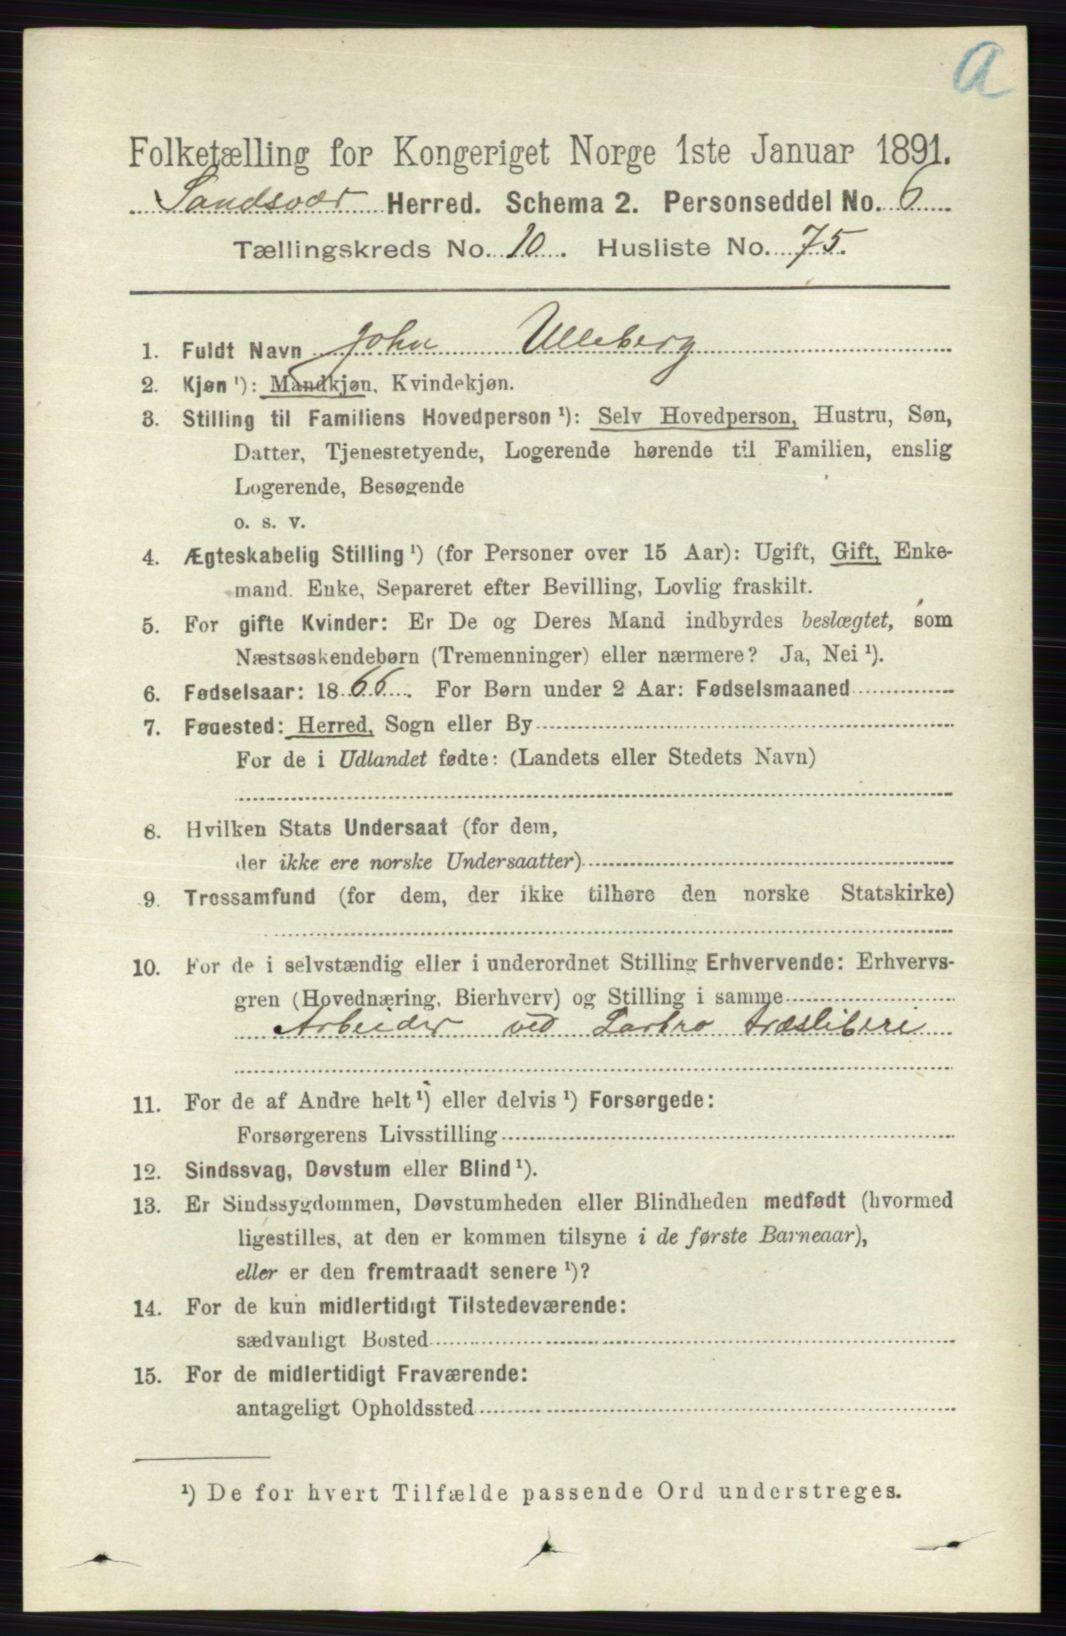 a
Folketælling for Kongeriget Norge 1ste Januar 1891.
Sandsvær Herred. Schema 2. Personseddel No. 6
Tællingskreds No. 10. Husliste No. 75.
1. Fuldt Navn John Ulleberg
2. Kjøn ¹): Mandkjøn, Kvindekjøn.
3. Stilling til Familiens Hovedperson ¹): Selv Hovedperson, Hustru, Søn,
Datter, Tjenestetyende, Logerende hørende til Familien, enslig
Logerende, Besøgende
o. s. v.
4. Ægteskabelig Stilling ¹) (for Personer over 15 Aar): Ugift, Gift, Enke-
mand, Enke, Separeret efter Bevilling, Lovlig fraskilt.
5. For gifte Kvinder: Er De og Deres Mand indbyrdes beslægtet, som
Næstsøskendebørn (Tremenninger) eller nærmere? Ja, Nei ¹).
6. Fødselsaar: 1866. For Børn under 2 Aar: Fødselsmaaned
7. Fødested: Herred, Sogn eller By
For de i Udlandet fødte: (Landets eller Stedets Navn)
8. Hvilken Stats Undersaat (for dem,
der ikke ere norske Undersaatter)
9. Trossamfund (for dem, der ikke tilhøre den norske Statskirke)
10. For de i selvstændig eller i underordnet Stilling Erhvervende: Erhvervs-
gren (Hovednæring, Bierhverv) og Stilling i samme
Arbeider ved Labro træsliberi
11. For de af Andre helt ¹) eller delvis ¹) Forsørgede:
Forsørgerens Livsstilling
12. Sindssvag, Døvstum eller Blind ¹).
13. Er Sindssygdommen, Døvstumheden eller Blindheden medfødt (hvormed
ligestilles, at den er kommen tilsyne i de første Barneaar),
eller er den fremtraadt senere ¹)?
14. For de kun midlertidigt Tilstedeværende:
sædvanligt Bosted
15. For de midlertidigt Fraværende:
antageligt Opholdssted
¹) De for hvert Tilfælde passende Ord understreges.